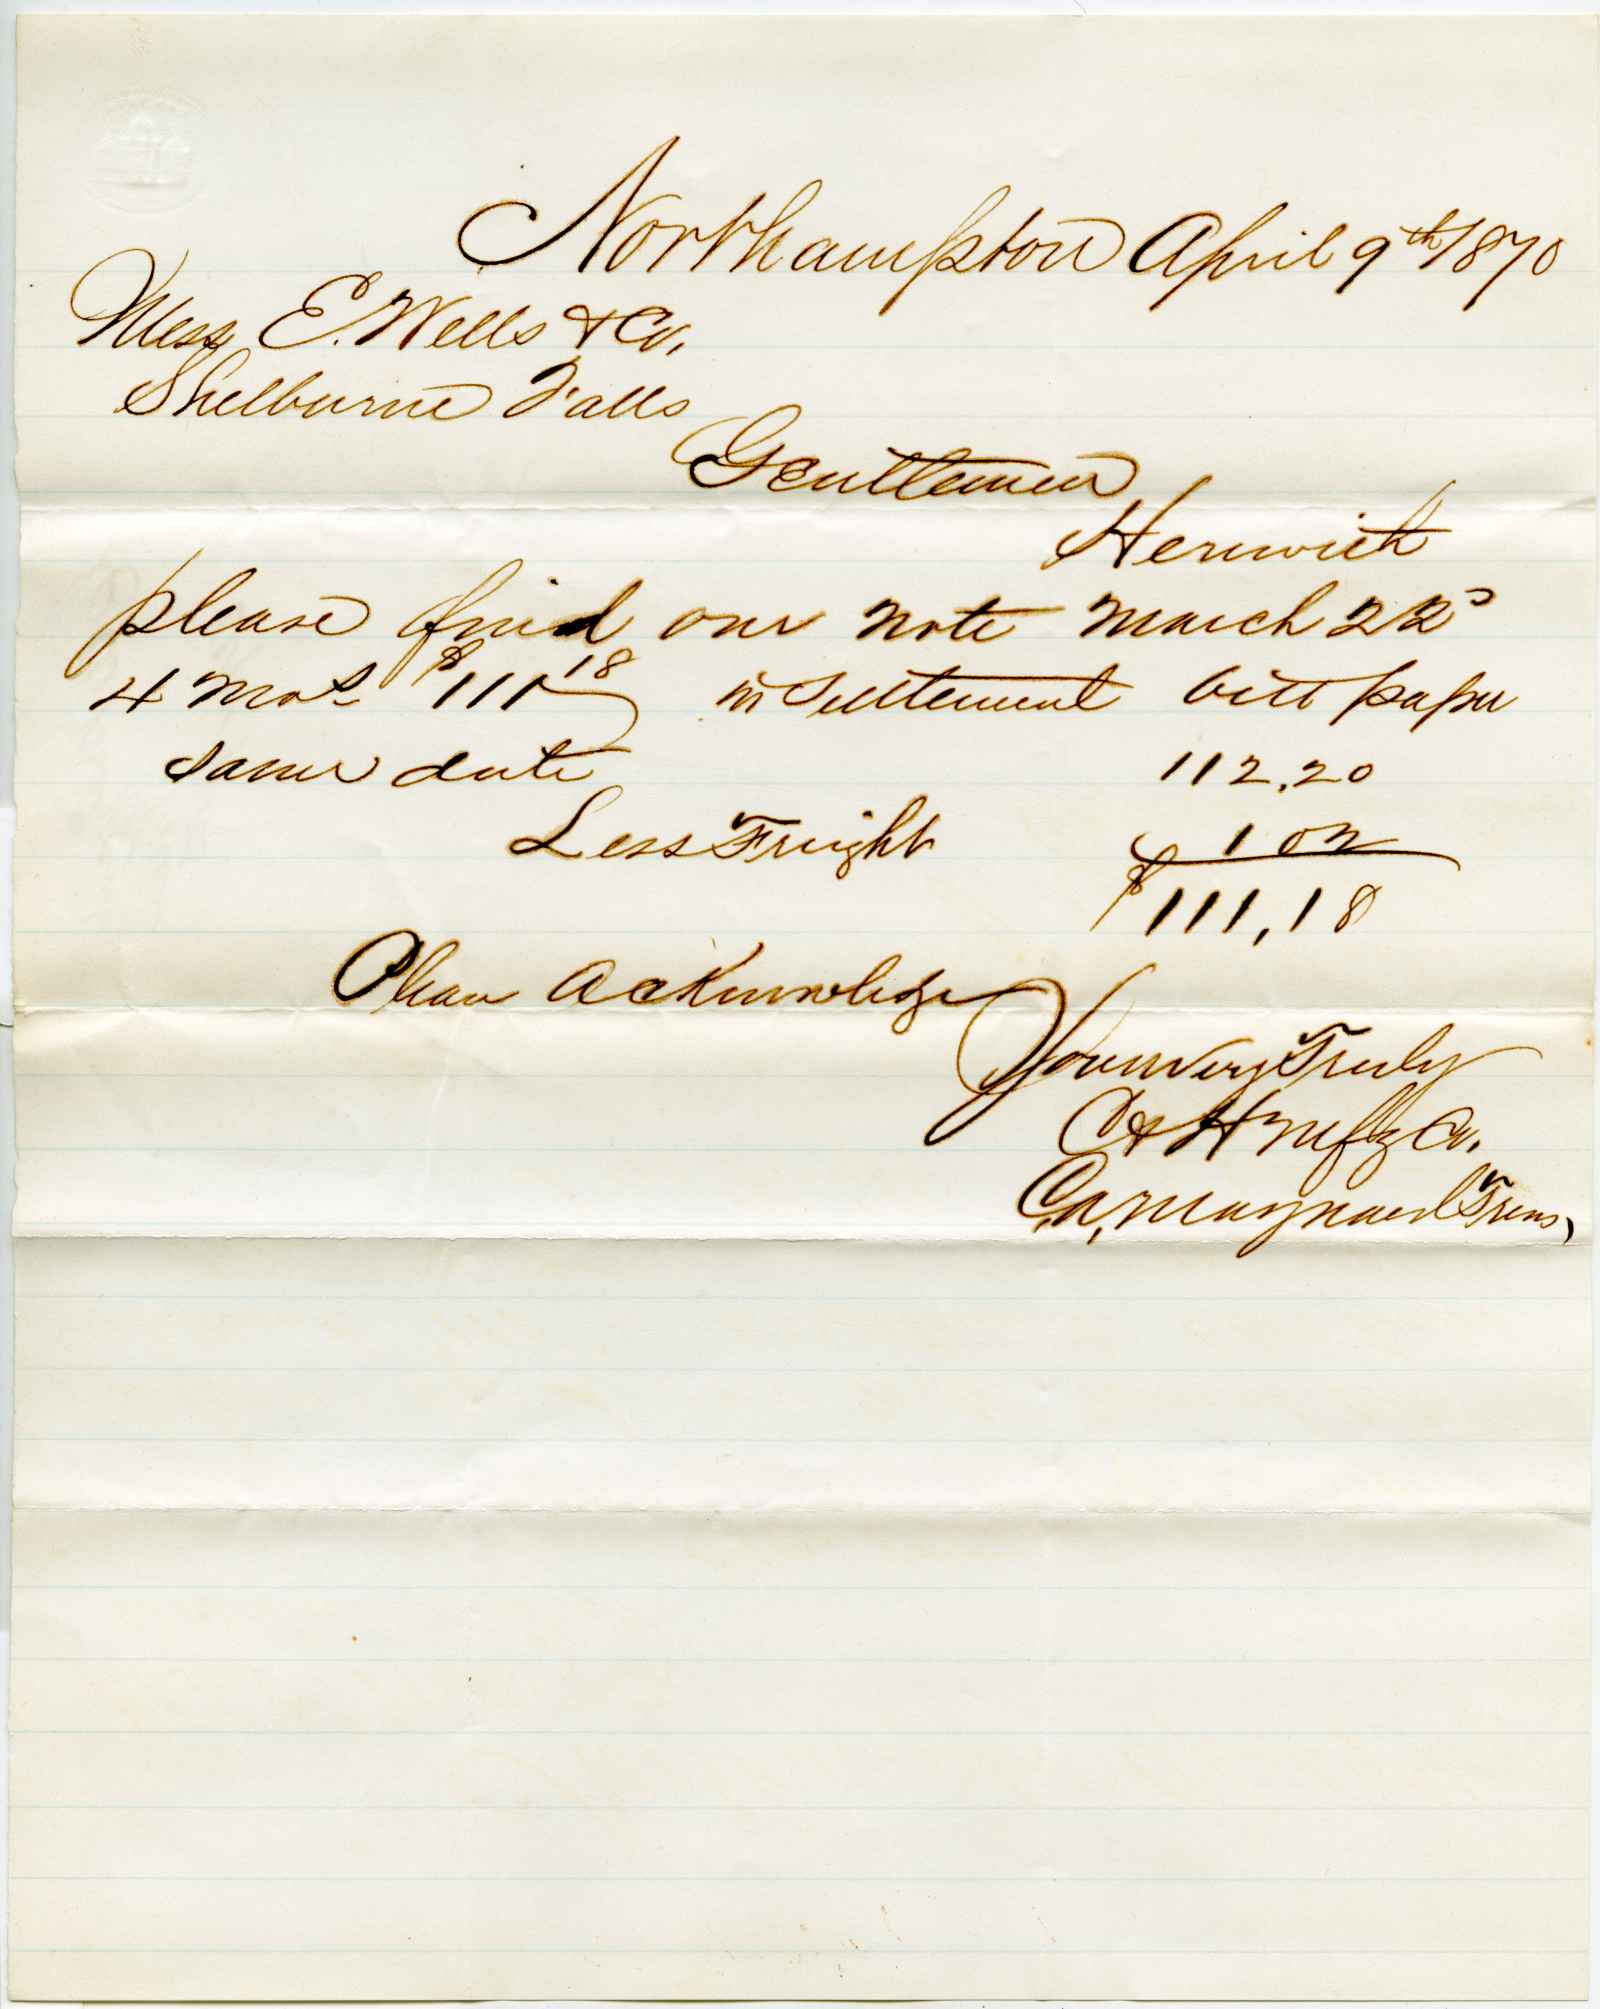 Northampton April 9th 1870
Mess E. Wells & Co,
Shelburne Falls
Gentlemen
Herewith
please find our note March 22d
4 Mos $111 18 in settlement bill paper
same date 112.20
Less Freight 1 02
$111,18
Please Acknowledge
Yours Very Truly
C & H Mfg Co.
C.A. Maynard Treas,